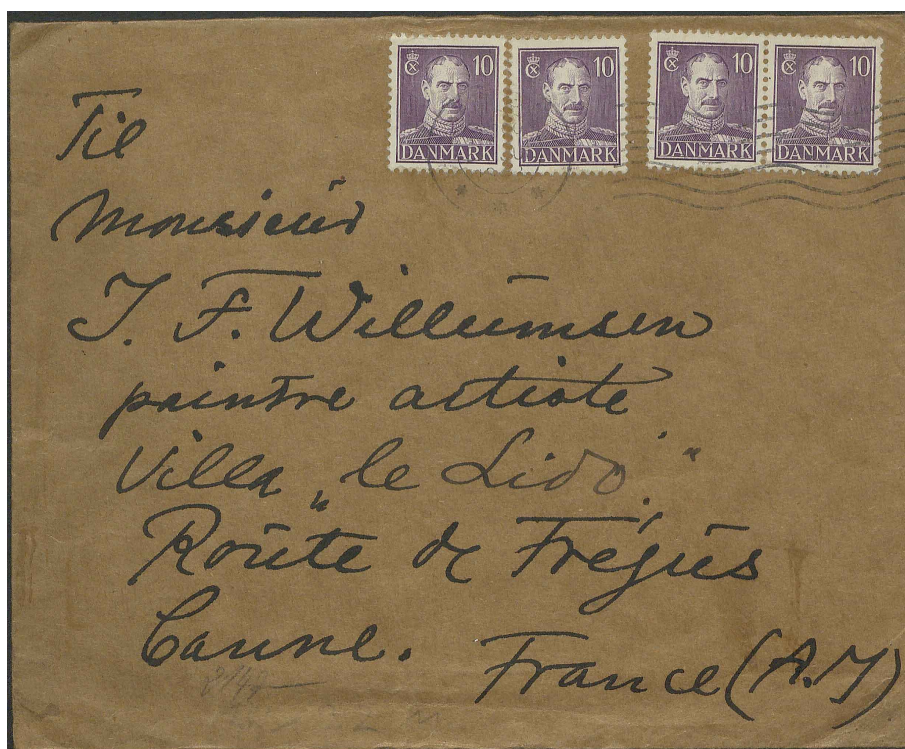 10 10 10 10
DANMARK DANMARK DANMARK DANMARK
Til
Monsieur
J. F. Willumsen
peintre artiste
Villa „le Lido“
Route de Fréjus
Canne.
France (A.M)